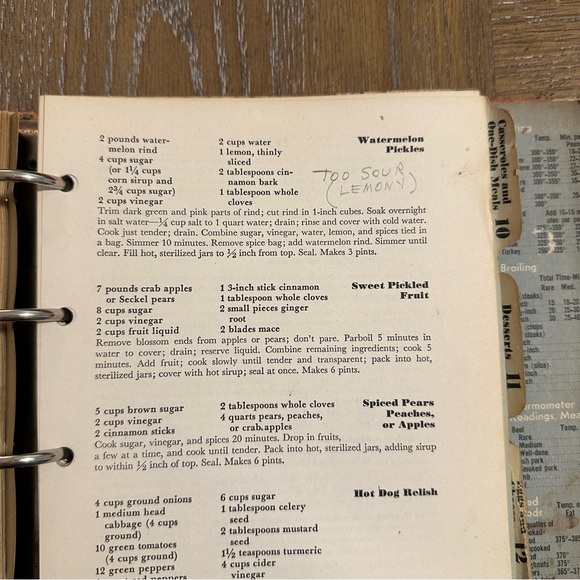 2 pounds water-
melon rind
4 cups sugar
(or 1¼ cups
corn sirup and
2¾ cups sugar)
2 cups vinegar
2 cups water
1 lemon, thinly
sliced
2 tablespoons cin-
namon bark
1 tablespoon whole
cloves
Watermelon
Pickles
TOO SOUR
(LEMONY)
Trim dark green and pink parts of rind; cut rind in 1-inch cubes. Soak overnight
in salt water—¼ cup salt to 1 quart water; drain; rinse and cover with cold water.
Cook just tender; drain. Combine sugar, vinegar, water, lemon, and spices tied in
a bag. Simmer 10 minutes. Remove spice bag; add watermelon rind. Simmer until
clear. Fill hot, sterilized jars to ½ inch from top. Seal. Makes 3 pints.
7 pounds crab apples
or Seckel pears
8 cups sugar
2 cups vinegar
2 cups fruit liquid
1 3-inch stick cinnamon
1 tablespoon whole cloves
2 small pieces ginger
root
2 blades mace
Sweet Pickled
Fruit
Remove blossom ends from apples or pears; don't pare. Parboil 5 minutes in
water to cover; drain; reserve liquid. Combine remaining ingredients; cook 5
minutes. Add fruit; cook slowly until tender and transparent; pack into hot,
sterilized jars; cover with hot sirup; seal at once. Makes 6 pints.
5 cups brown sugar
2 cups vinegar
2 cinnamon sticks
2 tablespoons whole cloves
4 quarts pears, peaches,
or crab apples
Spiced Pears
Peaches,
or Apples
Cook sugar, vinegar, and spices 20 minutes. Drop in fruits,
a few at a time, and cook until tender. Pack into hot, sterilized jars, adding sirup
to within ½ inch of top. Seal. Makes 6 pints.
4 cups ground onions
1 medium head
cabbage (4 cups
ground)
10 green tomatoes
(4 cups ground)
12 green peppers
6 cups sugar
1 tablespoon celery
seed
2 tablespoons mustard
seed
1½ teaspoons turmeric
4 cups cider
vinegar
Hot Dog Relish
Casseroles and
One-Dish Meals
10
Desserts
11
12
Temp.
Broiling
Total Time
Rare Med.
Beef
Rare
Medium
Well-done